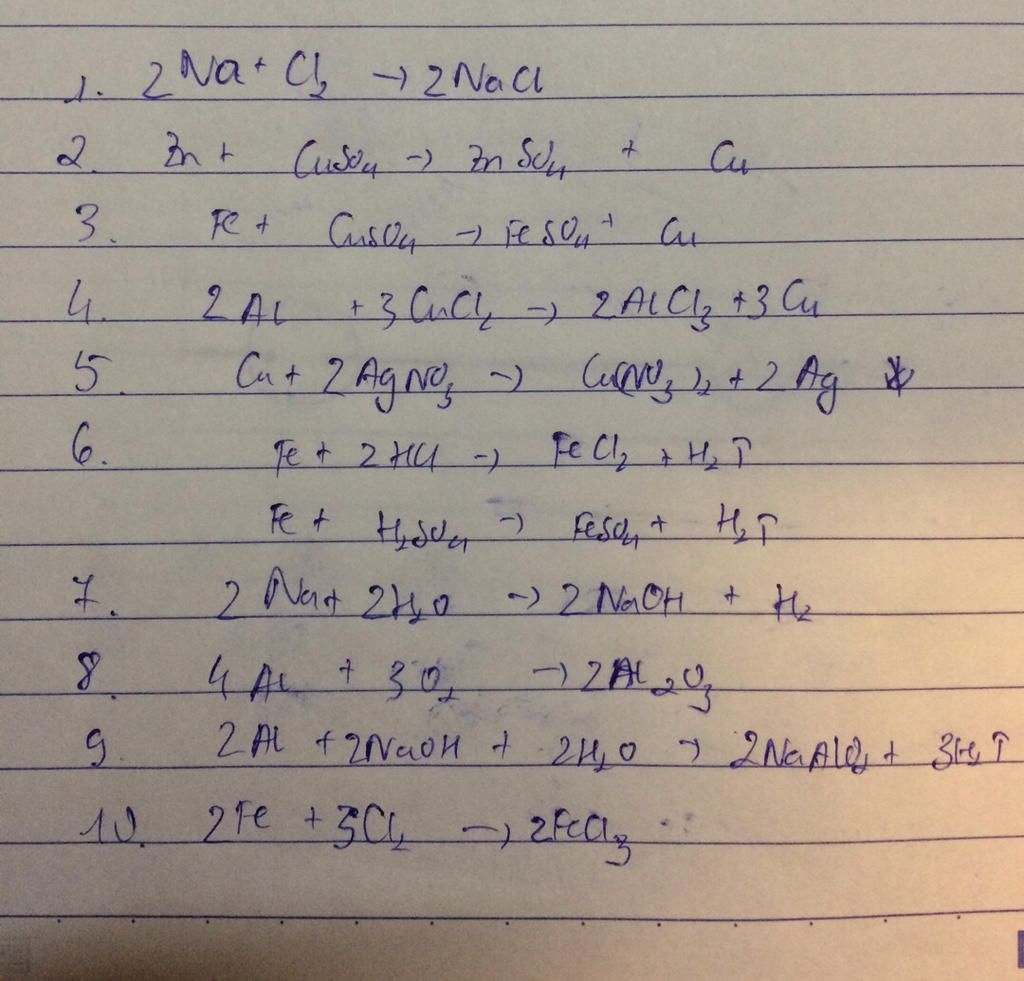 1. 2Na + Cl₂ → 2NaCl
2. Zn + CuSO₄ → ZnSO₄ + Cu
3. Fe + CuSO₄ → FeSO₄ + Cu
4. 2Al + 3CuCl₂ → 2AlCl₃ + 3Cu
5. Cu + 2AgNO₃ → Cu(NO₃)₂ + 2Ag
6. Fe + 2HCl → FeCl₂ + H₂↑
Fe + H₂SO₄ → FeSO₄ + H₂↑
7. 2Na + 2H₂O → 2NaOH + H₂
8. 4Al + 3O₂ → 2Al₂O₃
9. 2Al + 2NaOH + 2H₂O → 2NaAlO₂ + 3H₂↑
10. 2Fe + 3Cl₂ → 2FeCl₃